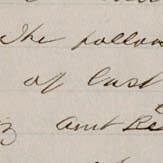 The follow
of Cash
amt Re